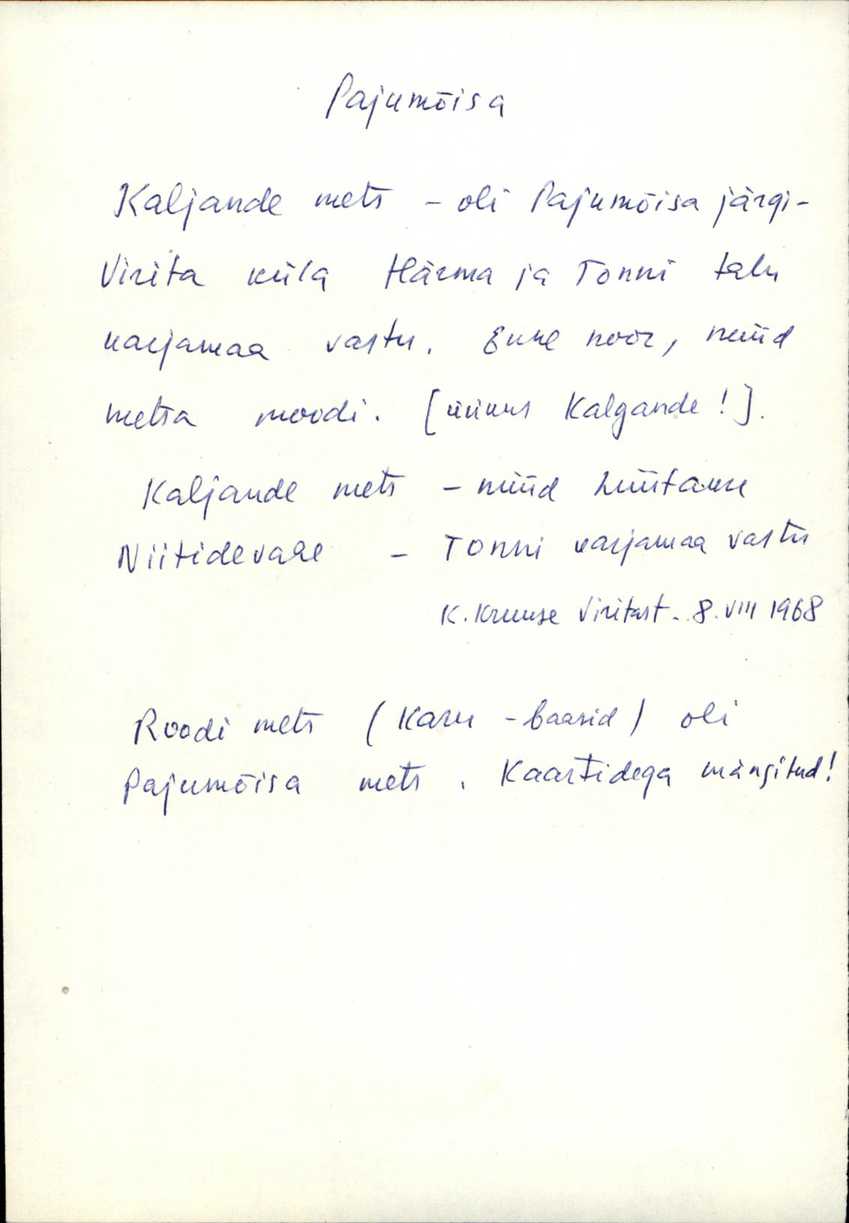 Pajumõisa
Kaljande mets - oli Pajumõisa järgi-
Virita küla Härma ja Tonni talu
karjamaa vastu. Enne noor, nüüd
metsa moodi. [ Kalgande!].
Kaljande mets - nüüd hüütakse
Niitidevahe - Tonni karjamaa vastu
K. Kruuse Viritast. 8. VIII 1968
Roodi mets (Karu - baarid) oli
Pajumõisa mets. Kaartidega mängitud!